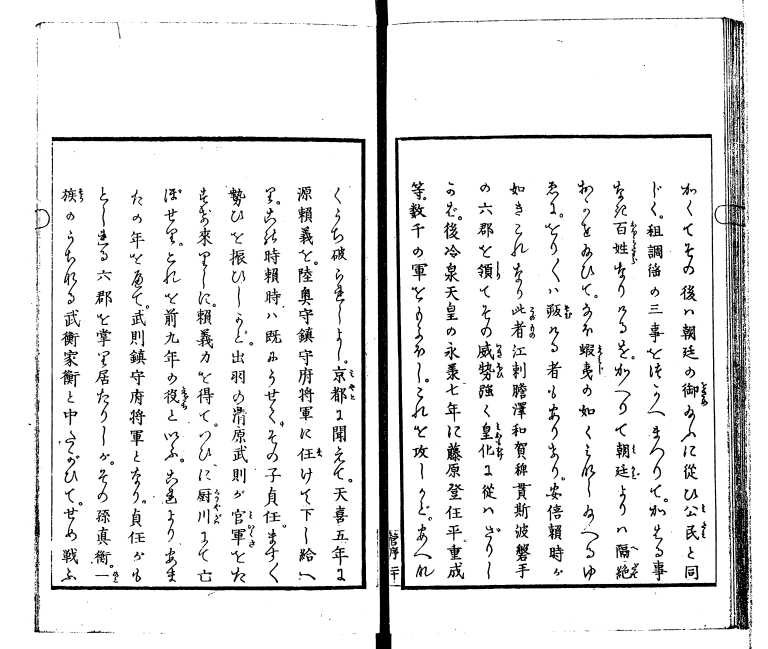 かくてその後ハ朝廷の御おふに従ひ公民と同
じく。租調傜の三事を仕うへまつりて。かゝる事
なき百姓なりけるを。かへりて朝廷よりハ隔絶
おかせ給ひて。なほ蝦夷の如くミなし給へるゆ
ゑに。をり〳〵ハ叛ける者もありき。安倍頼時が
如きこれなり此者江刺膽澤和賀稗貫斯波磐手
の六郡を領てその威勢強く皇化に從はざりし
かば。後冷泉天皇の永承七年に藤原登任平重成
等。數千の軍をもよほし。これを攻しかど。あへなくうち破られしよし。京都に聞えて。天喜五年に
源頼義を。陸奥守鎮守府將軍に任けて下し給へ
り。その時頼時ハ既にうせて。その子貞任。ますます
勢ひを振ひしかど。出羽の清原武則が官軍をた
すけ來りしに。頼義力を得て。つひに厨川にて亡
ぼせり。これを前九年の役といふ。これよりあま
たの年をへて。武則鎮守府將軍となり。貞任がも
としれる六郡を掌り居たりしが。その孫真衡。一
族のうちなる武衡家衡と中たがひて。せめ戦ふ